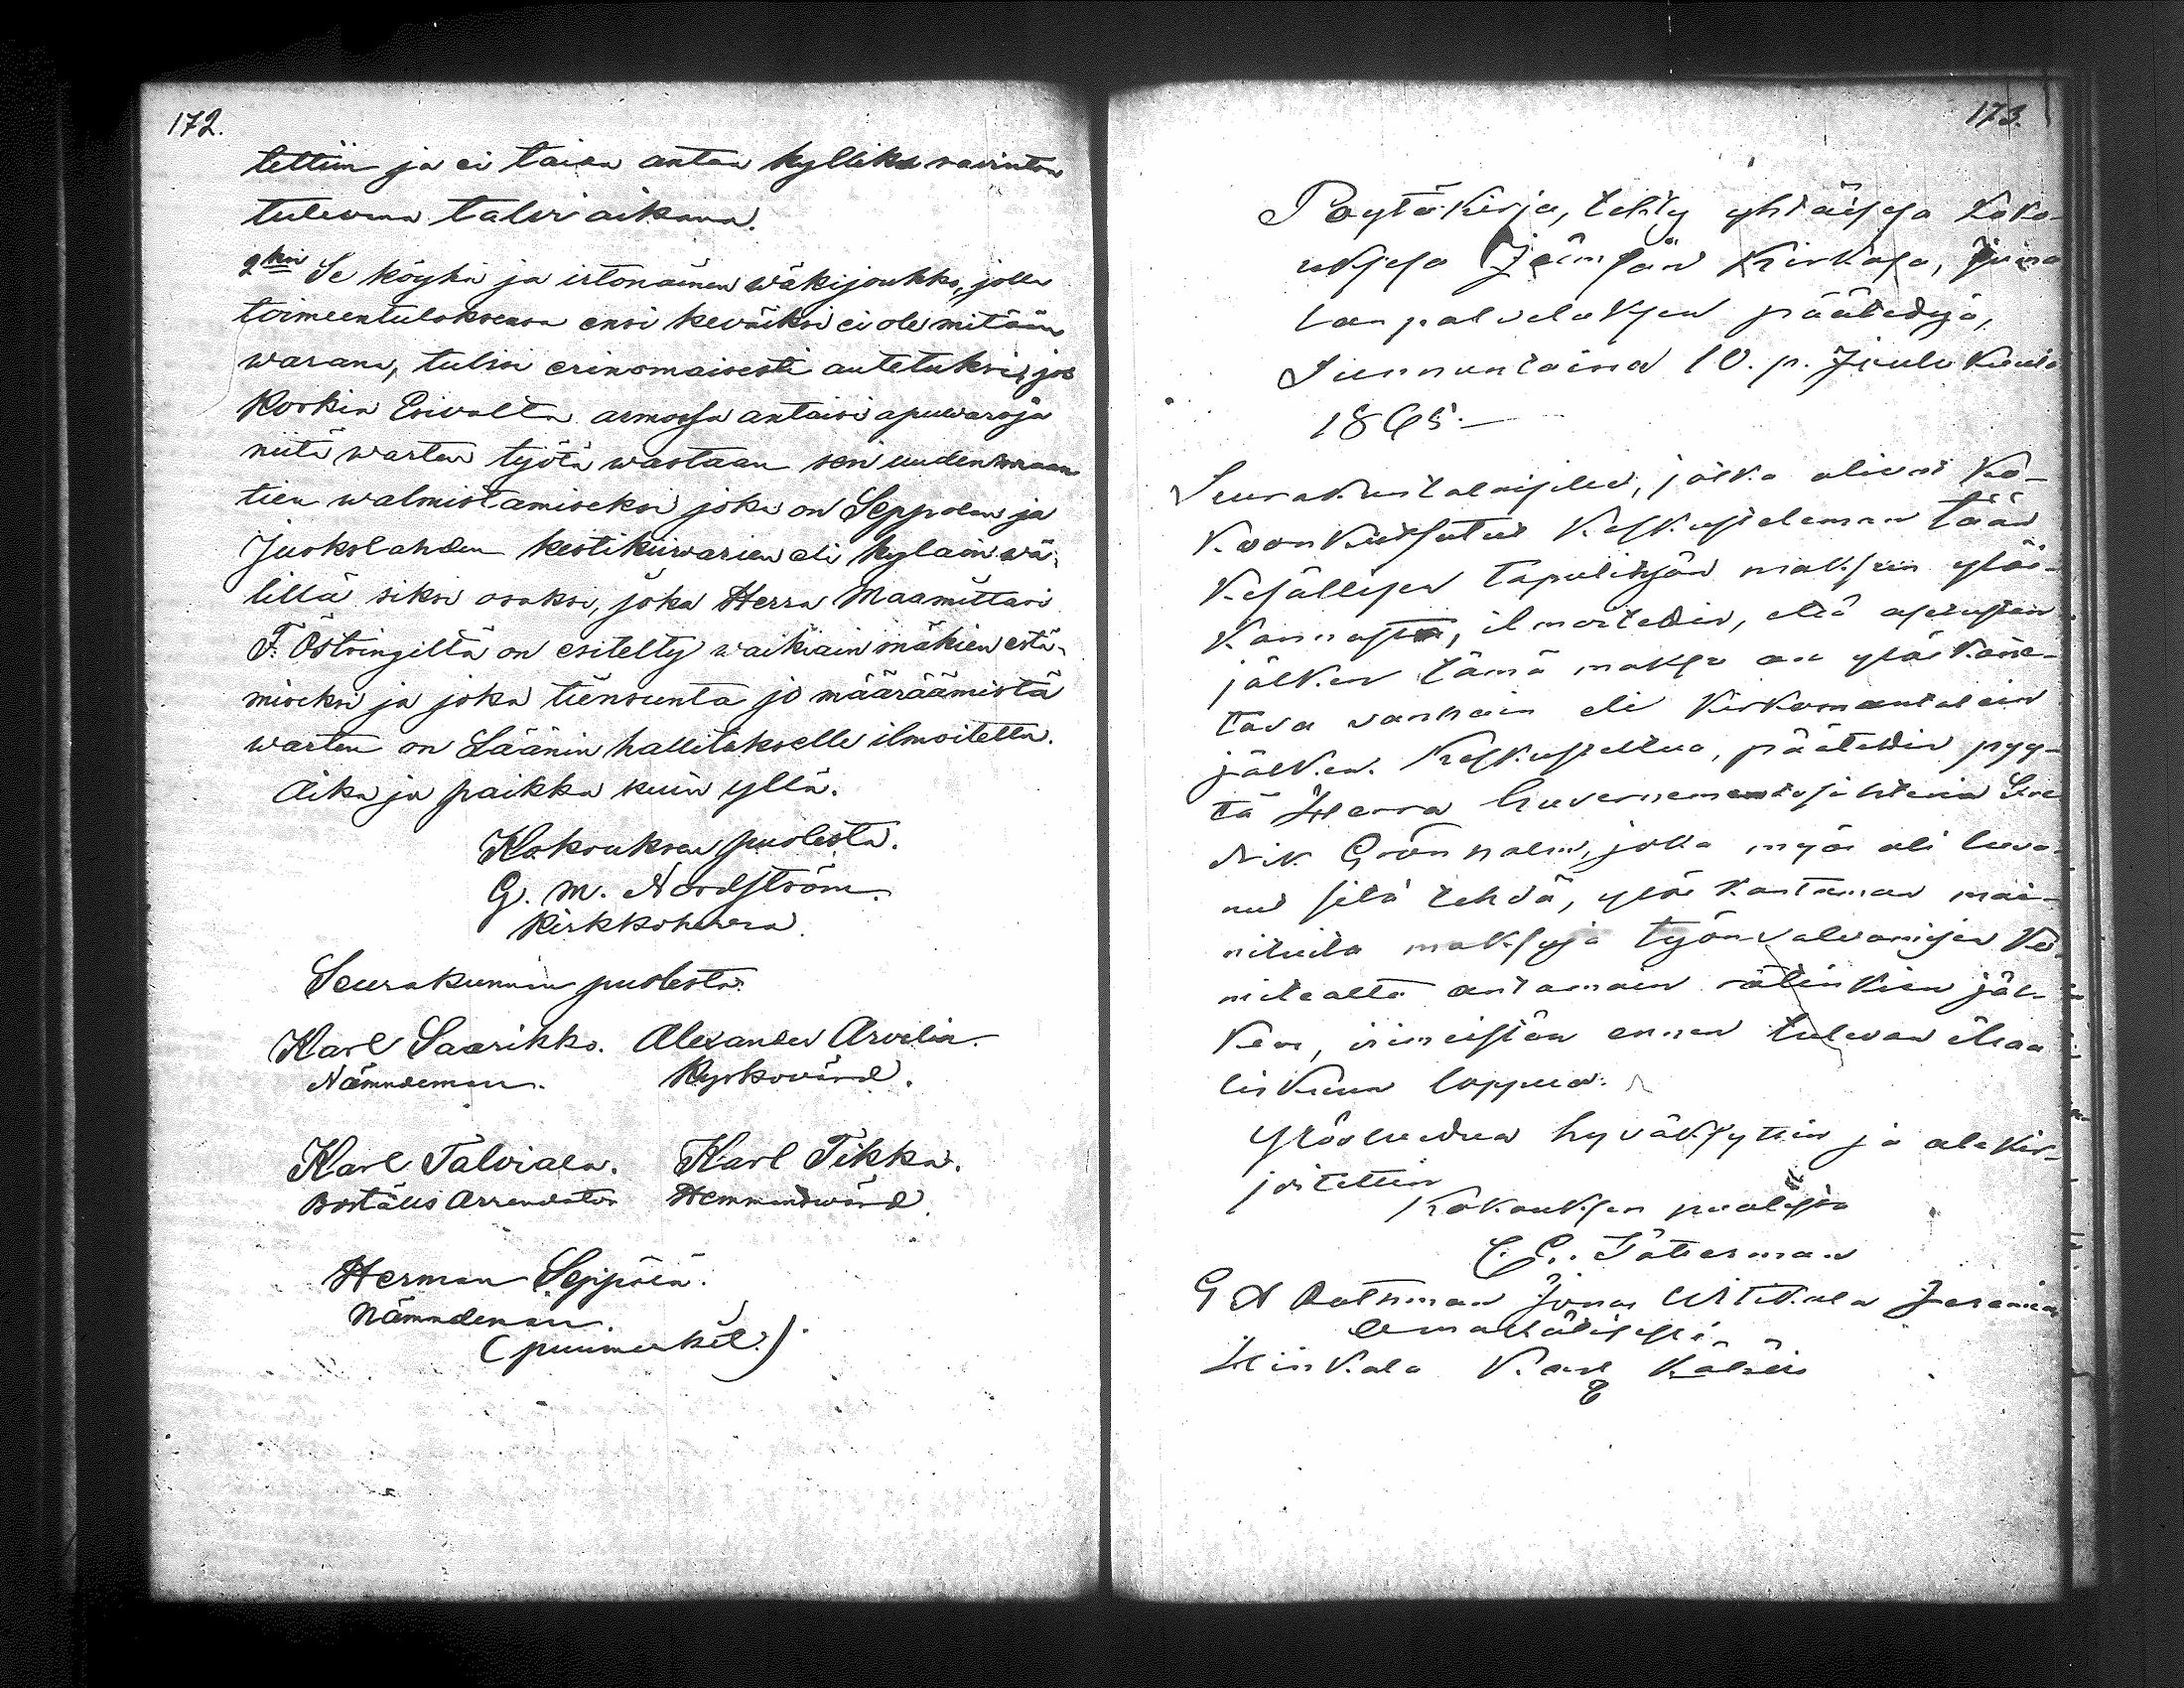 172.
tettiin ja ei taida antaa kylliksi ravintoa
tulevana talvi aikana.
2ksi Se köyhä ja irtonainen wäkijoukko, jolla
toimeentuloksensa ensi kevääksi ei ole mitään
warana, tulisi erinomaisesti autetuksi, jos
Korkia Esivalta armossa antaisi apuwaroja
niitä warten työtä wastaan sen uuden maan
tien walmistamiseksi joka on Seppolan ja
Juokslahden kestikiivarien eli kyläin wä-
lillä siksi osaksi, joka Herra Maamittari
F. Östringiltä on esitelty waikiain mäkien estä-
miseksi ja joka tiensuunta jo määräämistä
warten on Läänin hallitukselle ilmoitettu.
Aika ja paikka kuin yllä.
Kokouksen puolesta.
G. M. Nordström
Kirkkoherra.
Seurakunnan puolesta:
Karl Saarikko. Alexander Arvelin
Nämndeman. Kyrkovärd.
Karl Talviala. Karl Tikka.
Boställs Arrendator Hemmansvärd.
Herman Seppälä.
Nämndeman.
(puumerkit.)
173.
Pöytäkirja, tehty yhteisesä koko-
uksesa Jämsän Kirkosa, Juma-
lan palveluksen päätedysä,
Sunnuntaina 10. p. Joulu Kuuta
1865.
Seurakuntalaisilen, jotka olivat ko-
koon kutsutut keskusteleman tään
kesällisen tapulityön maksun ylös-
kannosta, ilmoitedin, että asetusten
jälken tämä maksu on ylös kanne-
tava vanhain eli kirkomantalein
jälken. Keskusteltua, päätedin pyy-
tä Herra Guvernements sihteria Fre
drik Grönholm, joka myös oli luva-
nut sitä tehdä, ylös kantaman mai-
nituita maksuja työn valvomisen Ko-
mitealta antamain rätinkien jäl-
ken, viimeistän ennen tulevan Maa-
lis kuun loppua.
Ylösluedua hyväksyttiin ja alekir-
joitettiin
Kokouksen puolesta
C. E. Täterman
G A Rotkman Jonas Uitikala Jeremias
Hinkala Karl